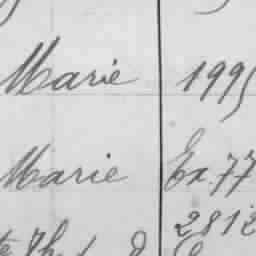 Marie 1995
Marie Ex 77
2812